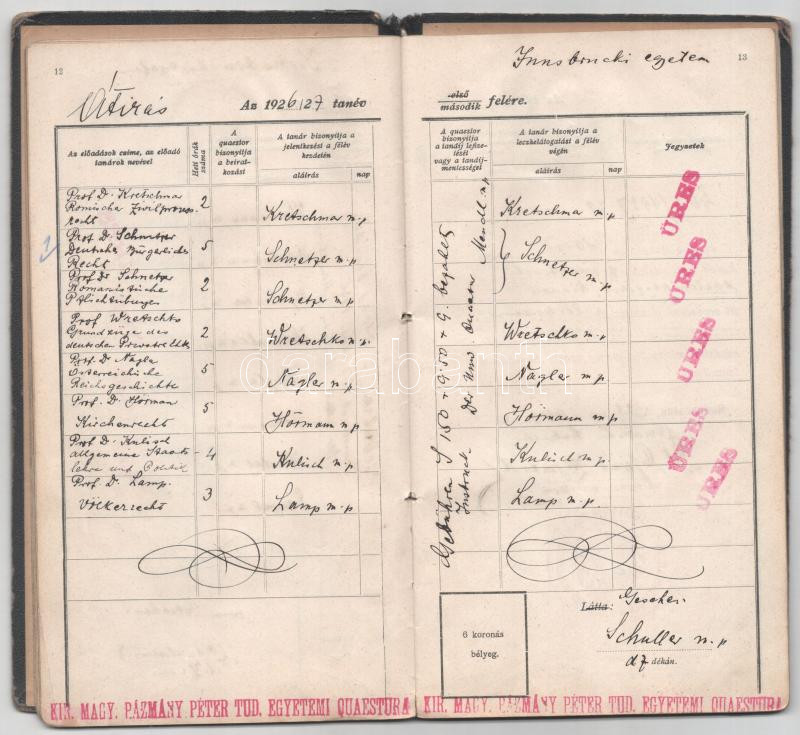 12
Átírás
Az 1926/27 tanév
Az előadások czime, az előadó
tanárok nevével
Heti órák
száma
A
quaestor
bizonyitja
a beirat-
kozást
A tanár bizonyitja a
jelentkezést a félév
kezdetén
aláírás
nap
Prof D. Kretschmar
Römische Zivilprozess-
recht
2
Kretschmar m.p
Prof. D. Schnetzer
Deutsche Bürgerliche
Recht
5
Schnetzer m.p
Prof Dr Schnetzer
Romanistische
2
Schnetzer m.p
Prof Wretschko
Grundzüge des
deutschen Privatrechts
2
Wretschko m.p
Prof. D. Nagler
Österreichische
Reichsgeschichte
5
Nagler m.p
Prof. D. Hörman
Kirchenrecht
5
Hörmann m.p
Prof D. Kulisch
allgemeine Staats-
lehre und Politik
4
Kulisch m.p
Prof. D. Lamp.
Völkerrecht
3
Lamp m.p
KIR. MAGY. PÁZMÁNY PÉTER TUD. EGYETEMI QUAESTURA
Innsbrucki egyetem
13
első
második felére.
A quaestor
bizonyitja
a tandíj lefize-
tését
vagy a tandíj-
mentességet
A tanár bizonyitja a
leczkelátogatást a félév
végén
aláírás
nap
Jegyzetek
Gebühren S 150 + 9·50 + 9. bezahlt
Innsbruck Der Univ. Quästor Mendl m.p
Kretschmar m.p
Schnetzer m.p
Wretschko m.p
Nagler m.p
Hörmann m.p
Kulisch m.p
Lamp m.p
ÜRES
ÜRES
ÜRES
ÜRES
ÜRES
6 koronás
bélyeg.
Látta: Gesehen
Schuller m.p
dz dékán.
KIR. MAGY. PÁZMÁNY PÉTER TUD. EGYETEMI QUAESTURA
darabanth